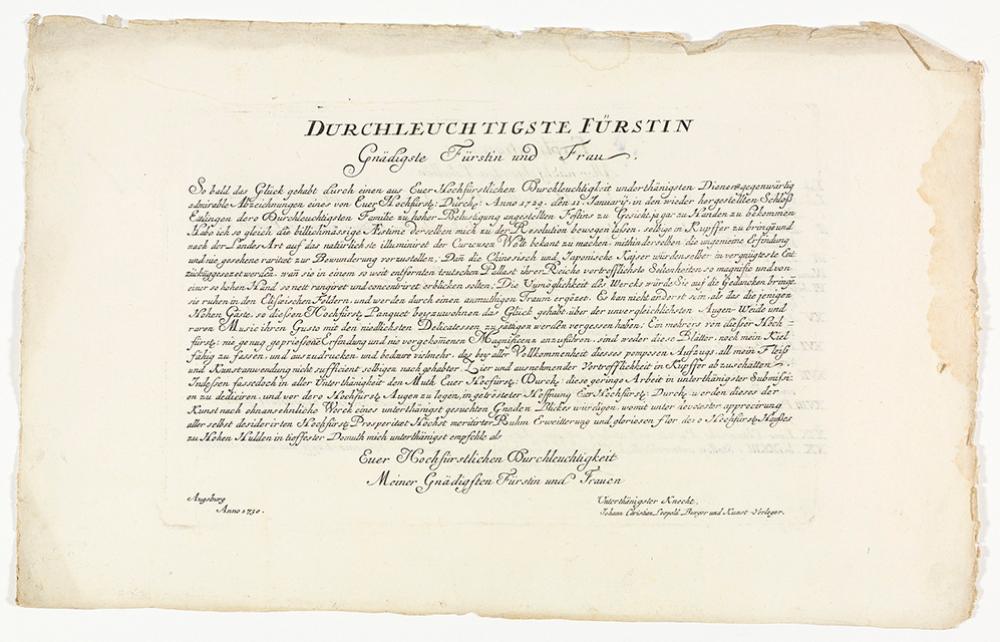 DURCHLEUCHTIGSTE FÜRSTIN
Gnädigste Fürstin und Frau.
So bald das Glück gehabt durch einen aus Euer Hochfürstlichen Durchleuchtigkeit underthänigsten Dienern gegenwärtig
admirable Abzeichnungen eines von Euer Hochfürstl: Durchl: Anno 1729. den 11. January. in den wieder hergestellten Schloß
Etlingen dero Durchleuchtigsten Familie zu hoher Belustigung angestellten Festins zu Gesicht, ja gar zu Handen zu bekommen
Habe ich so gleich die billichmässige Æstime derselben mich zu der Resolution bewegen lassen, selbige in Kupffer zu bringe und
nach der Landes Art auf das natürlichste illuminiret der Curieusen Welt bekant zu machen, mithin derselben die ungemeine Erfindung
und nie gesehene raritet zur Bewunderung vorzustellen; Dan die Chinesisch und Japonische Kaiser würden selber in vergnügteste Ent
zückung gesezet werden, wan sie in einem so weit entfernten teutschen Pallast ihrer Reiche vortrefflichste Seltenheiten so magnific und von
einer so hohen Hand so nett rangiret und concentriret erblicken solten; Die Unmöglichkeit des Wercks würde Sie auf die Gedancken bringe,
sie ruhen in den Elisæischen Feldern, und werden durch einen anmuthigen Traum ergözet. Es kan nicht anderst seyn, als das die jenigen
Hohen Gäste, so diessen Hochfürstl: Panquet beyzuwohnen das Glück gehabt, über der unvergleichlichsten Augen-Weide und
raren Music ihren Gusto mit den niedlichsten Delicatessen zu sättigen werden vergessen haben; Ein mehrers von diesser Hoch-
fürstl: nie genug gepriessene Erfindung und nie vorgekomenen Magnificenz anzuführen, sind weder diese Blätter, noch mein Kiel
fähig zu fassen, und auszudrucken, und bedaure vielmehr, das bey aller Vollkommenheit diesses pomposen Aufzugs, all mein Fleiß
und Kunstanwendung nicht sufficient, selbigen nach gehabter Zier und ausnehmender Vortrefflichkeit in Kupffer abzuschatten.
Indessen fasse doch in aller Unterthänigkeit den Muth Euer Hochfürstl: Durchl: diese geringe Arbeit in unterthänigster Submissi-
on zu dediciren, und vor dero Hochfürstl: Augen zu legen, in getrösteter Hoffnung Eur Hochfürstl: Durchl: werden dieses der
Kunst nach ohnansehnliche Werck eines unterthänigst gesuchten Gnaden Blickes würdigen, womit unter devotester apprecirung
aller selbst desiderirten Hochfürstl: Prosperitæt Höchst meritirter Ruhm Erweitterung und gloriosen flor dero Hochfürstl: Haußes
zu Hohen Hulden in tieffester Demuth mich unterthänigst empfehle als
Euer Hochfürstlichen Durchleuchtigkeit
Meiner Gnädigsten Fürstin und Frauen
Augsburg
Anno 1730.
Unterthänigster Knecht.
Johann Christian Leopold Burger und Kunst-Verleger.